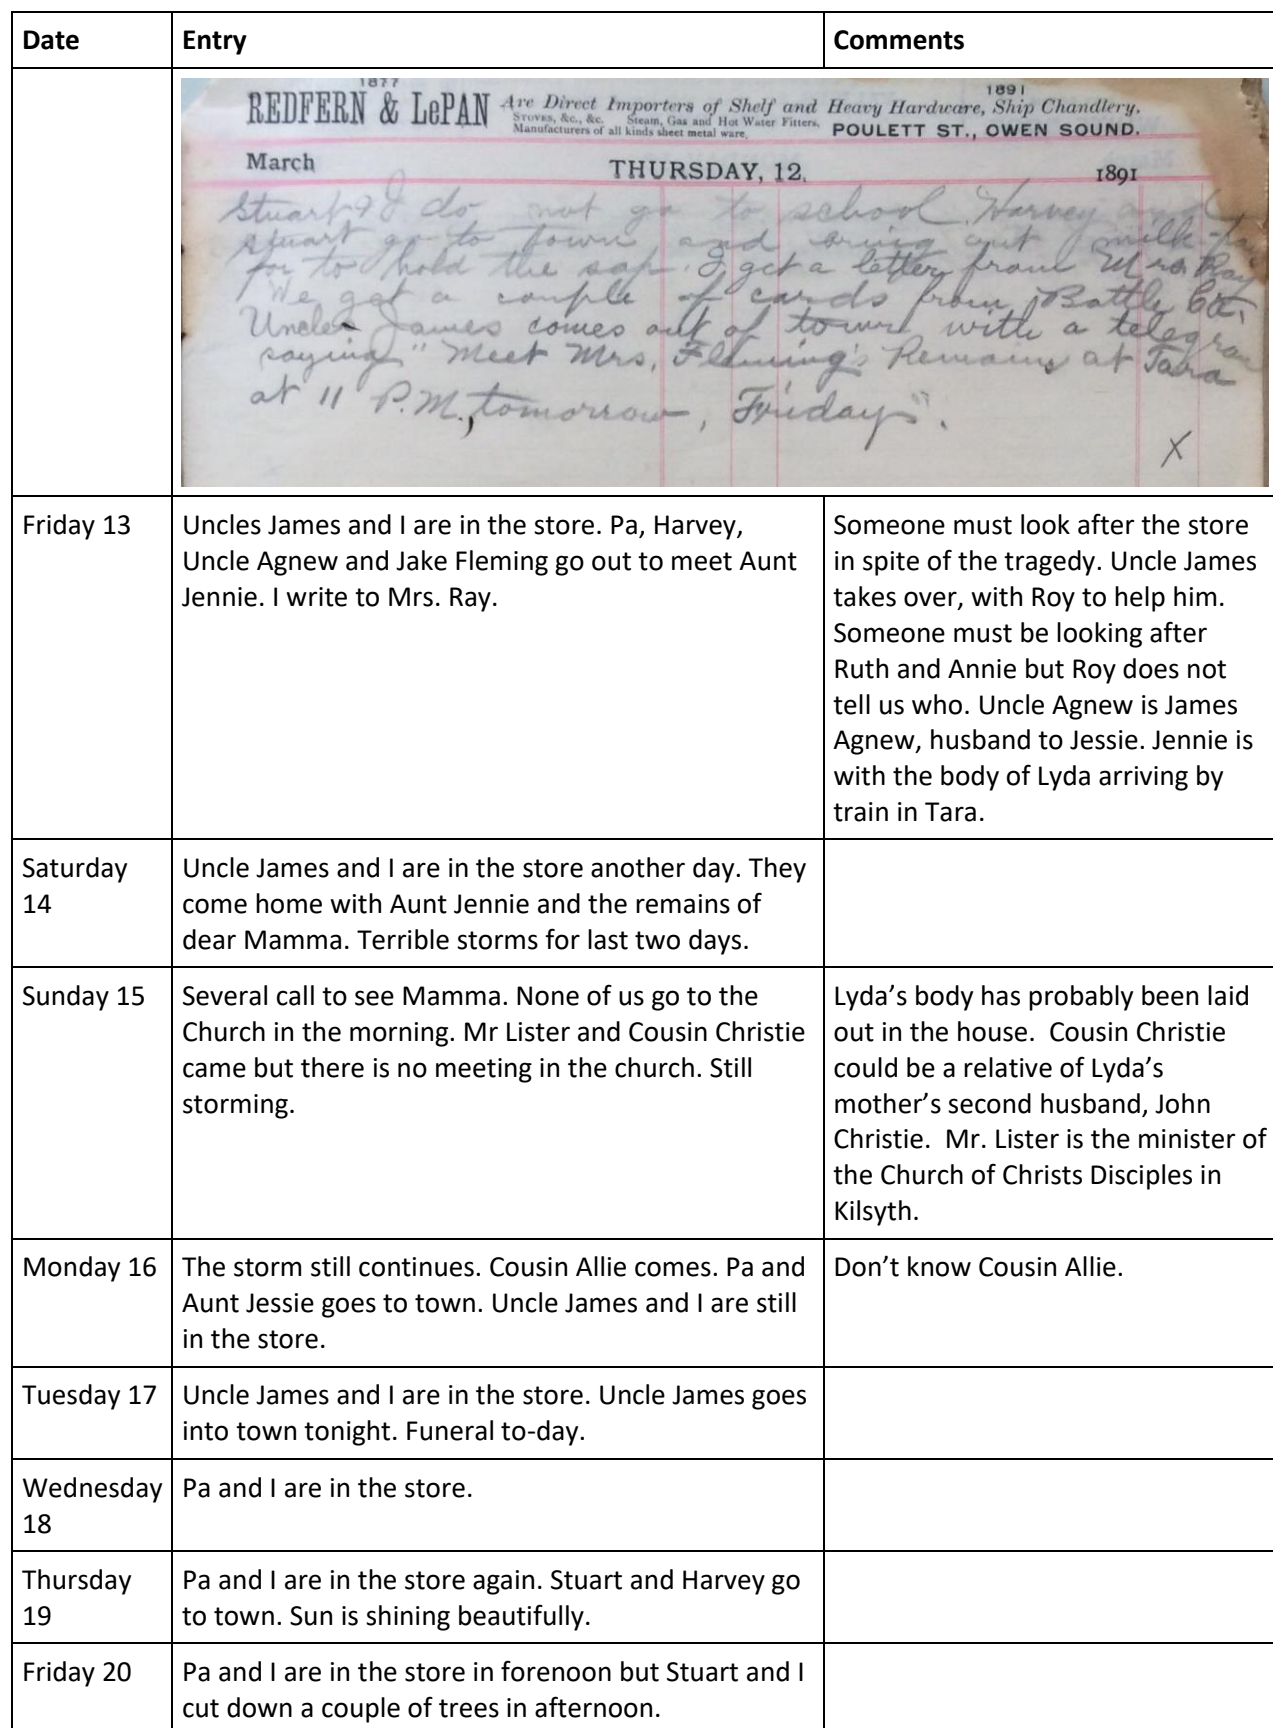 Date Entry Comments
1877 1891
REDFERN & LePAN Are Direct Importers of Shelf and Heavy Hardware, Ship Chandlery.
Stoves, &c., &c. Steam, Gas and Hot Water Fitters,
Manufacturers of all kinds sheet metal ware. POULETT ST., OWEN SOUND.
March THURSDAY, 12, 1891
Stuart & I do not go to school. Harvey and
Stuart go to town and bring out milk
for to hold the sap. I get a letter from Mrs. Ray
We get a couple of cards from Battle
Uncle James comes out of town with a telegram
saying "Meet Mrs. Fleming's Remains at Tara
at 11 P.M., tomorrow, Friday".
X
Friday 13
Uncles James and I are in the store. Pa, Harvey,
Uncle Agnew and Jake Fleming go out to meet Aunt
Jennie. I write to Mrs. Ray.
Someone must look after the store
in spite of the tragedy. Uncle James
takes over, with Roy to help him.
Someone must be looking after
Ruth and Annie but Roy does not
tell us who. Uncle Agnew is James
Agnew, husband to Jessie. Jennie is
with the body of Lyda arriving by
train in Tara.
Saturday
14
Uncle James and I are in the store another day. They
come home with Aunt Jennie and the remains of
dear Mamma. Terrible storms for last two days.
Sunday 15
Several call to see Mamma. None of us go to the
Church in the morning. Mr Lister and Cousin Christie
came but there is no meeting in the church. Still
storming.
Lyda's body has probably been laid
out in the house. Cousin Christie
could be a relative of Lyda's
mother's second husband, John
Christie. Mr. Lister is the minister of
the Church of Christs Disciples in
Kilsyth.
Monday 16
The storm still continues. Cousin Allie comes. Pa and
Aunt Jessie goes to town. Uncle James and I are still
in the store.
Don't know Cousin Allie.
Tuesday 17
Uncle James and I are in the store. Uncle James goes
into town tonight. Funeral to-day.
Wednesday
18
Pa and I are in the store.
Thursday
19
Pa and I are in the store again. Stuart and Harvey go
to town. Sun is shining beautifully.
Friday 20
Pa and I are in the store in forenoon but Stuart and I
cut down a couple of trees in afternoon.